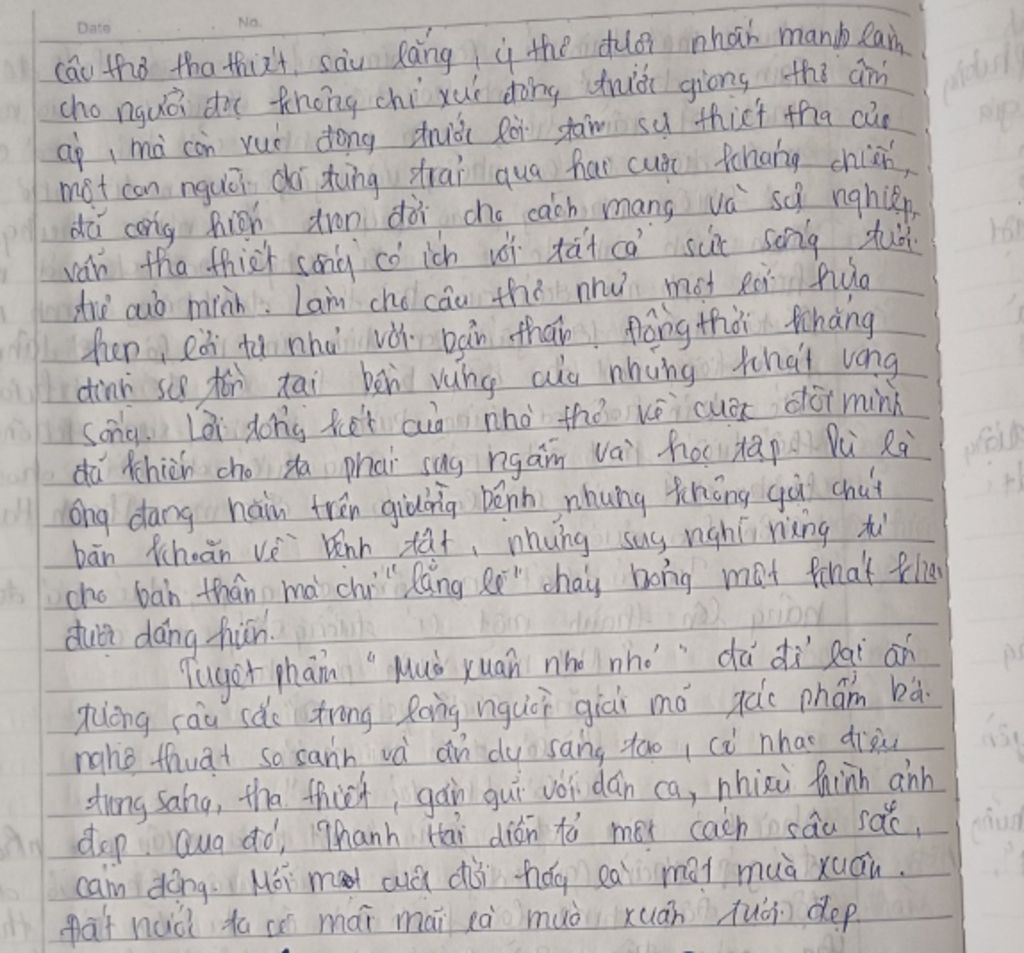 Date No.
câu thơ tha thiết, sâu lắng, ý thơ được nhấn mạnh làm
cho người đọc không chỉ xúc động trước giọng thơ ấm
áp, mà còn xúc động trước lời tâm sự thiết tha của
một con người đã từng trải qua hai cuộc kháng chiến,
đã cống hiến trọn đời cho cách mạng và sự nghiệp,
vẫn tha thiết sống có ích với tất cả sức sống tuổi
trẻ của mình. Làm cho câu thơ như một lời hứa
hẹn, lời tự nhủ với bản thân. Đồng thời khẳng
định sự tồn tại bền vững của những khát vọng
sống. Lời tổng kết của nhà thơ về cuộc đời mình
đã khiến cho ta phải suy ngẫm và học tập. Dù là
ông đang nằm trên giường bệnh nhưng không gợi chút
băn khoăn về bệnh tật, những suy nghĩ riêng tư
cho bản thân mà chỉ "lặng lẽ" cháy bỏng một khát khao
được dâng hiến.
Tuyệt phẩm "Mùa xuân nho nhỏ" đã để lại ấn
tượng sâu sắc trong lòng người giải mã tác phẩm bà.
nghệ thuật so sánh và ẩn dụ sáng tạo, có nhạc điệu
trong sáng, tha thiết, gần gũi với dân ca, nhiều hình ảnh
đẹp. Qua đó, Thanh Hải diễn tả một cách sâu sắc,
cảm động. Mỗi một cuộc đời hãy là một mùa xuân.
Đất nước ta sẽ mãi mãi là mùa xuân tươi đẹp